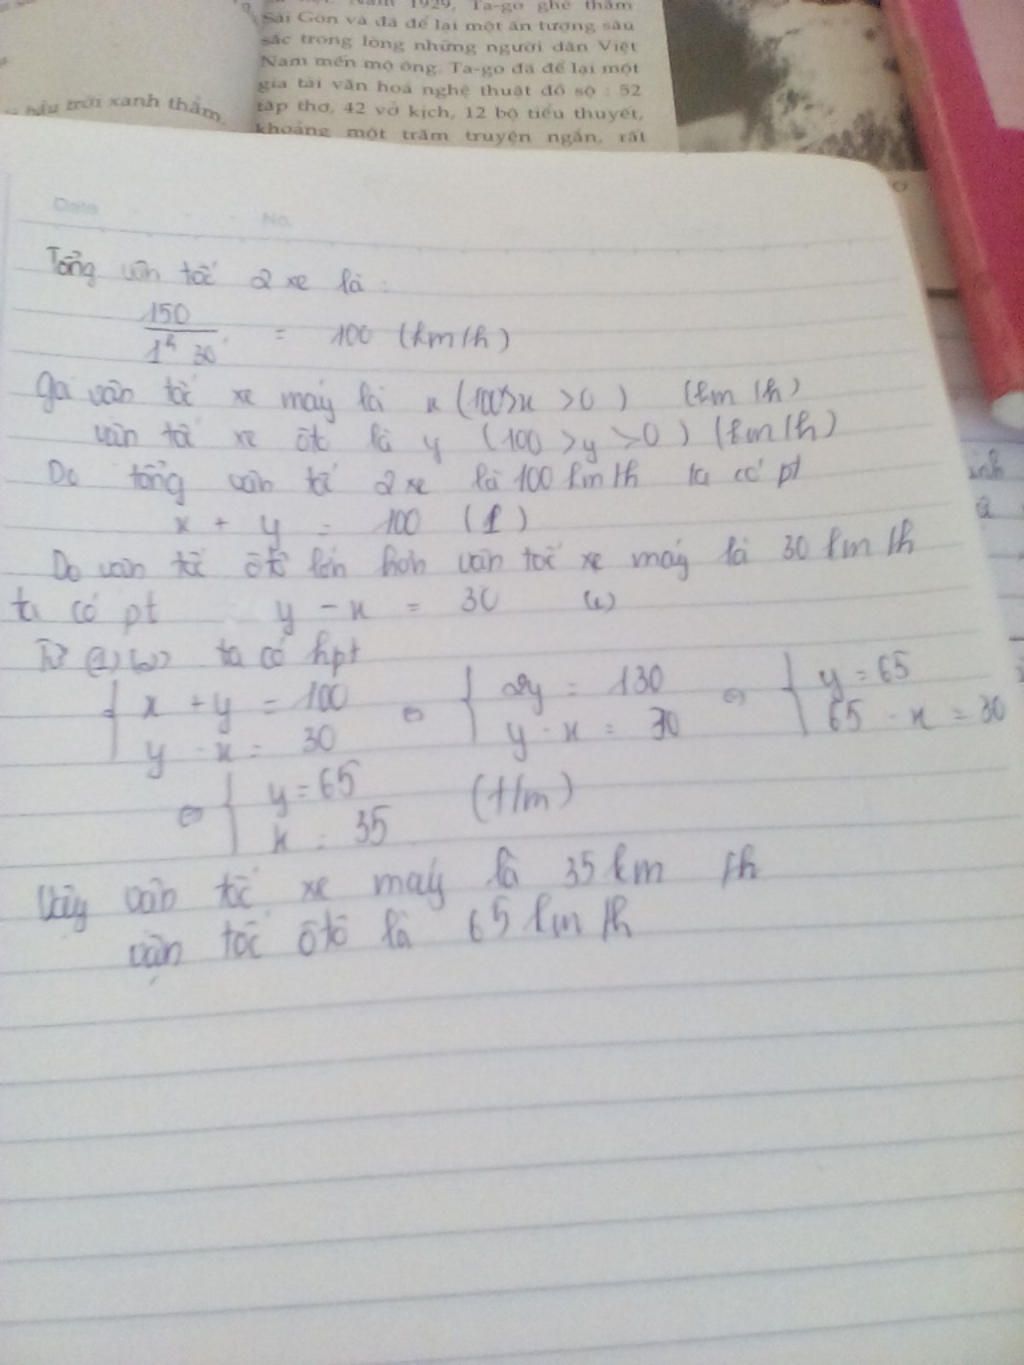 Năm 1929, Ta-go ghé thăm
Sài Gòn và đã để lại một ấn tượng sâu
sắc trong lòng những người dân Việt
Nam mến mộ ông. Ta-go đã để lại một
gia tài văn hoá nghệ thuật đồ sộ : 52
tập thơ, 42 vở kịch, 12 bộ tiểu thuyết,
khoảng một trăm truyện ngắn, rất
bầu trời xanh thẳm,
Date No.
Tổng vân tốc 2 xe là :
150 / 1h 30' = 100 (km/h)
Gọi vân tốc xe máy là x (100>x >0) (km/h)
vân tốc xe ôtô là y (100 >y >0) (km/h)
Do tổng vân tốc 2 xe là 100 km/h ta có pt
x + y = 100 (1)
Do vân tốc ôtô lớn hơn vân tốc xe máy là 30 km/h
ta có pt y - x = 30 (2)
Từ (1)(2) ta có hpt
{ x + y = 100 ⇔ { 2y = 130 ⇔ { y = 65
y - x = 30 y - x = 30 65 - x = 30
⇔ { y = 65 (t/m)
x = 35
Vậy vân tốc xe máy là 35 km /h
vận tốc ôtô là 65 km /h